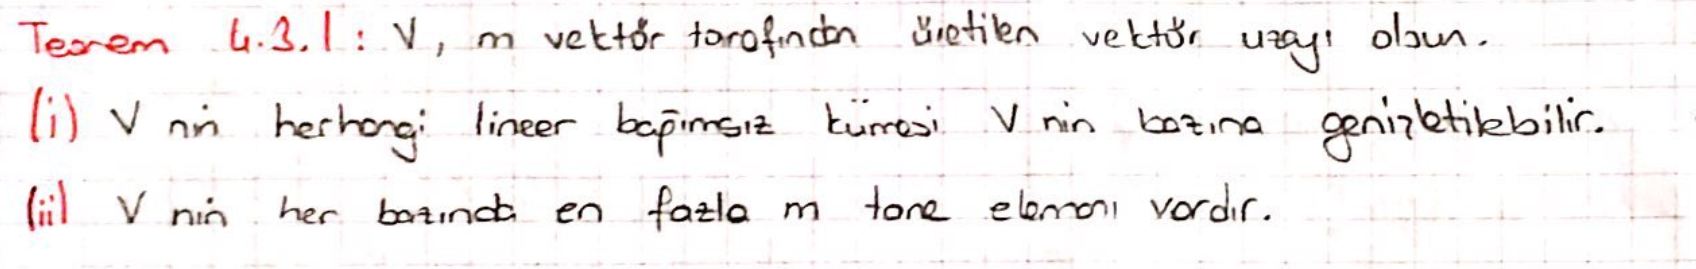 Teorem 4.3.1: V, m vektör tarafından üretilen vektör uzayı olsun.
(i) V nin herhangi lineer bağımsız kümesi V nin bazına genişletilebilir.
(ii) V nin her bazında en fazla m tane elemanı vardır.